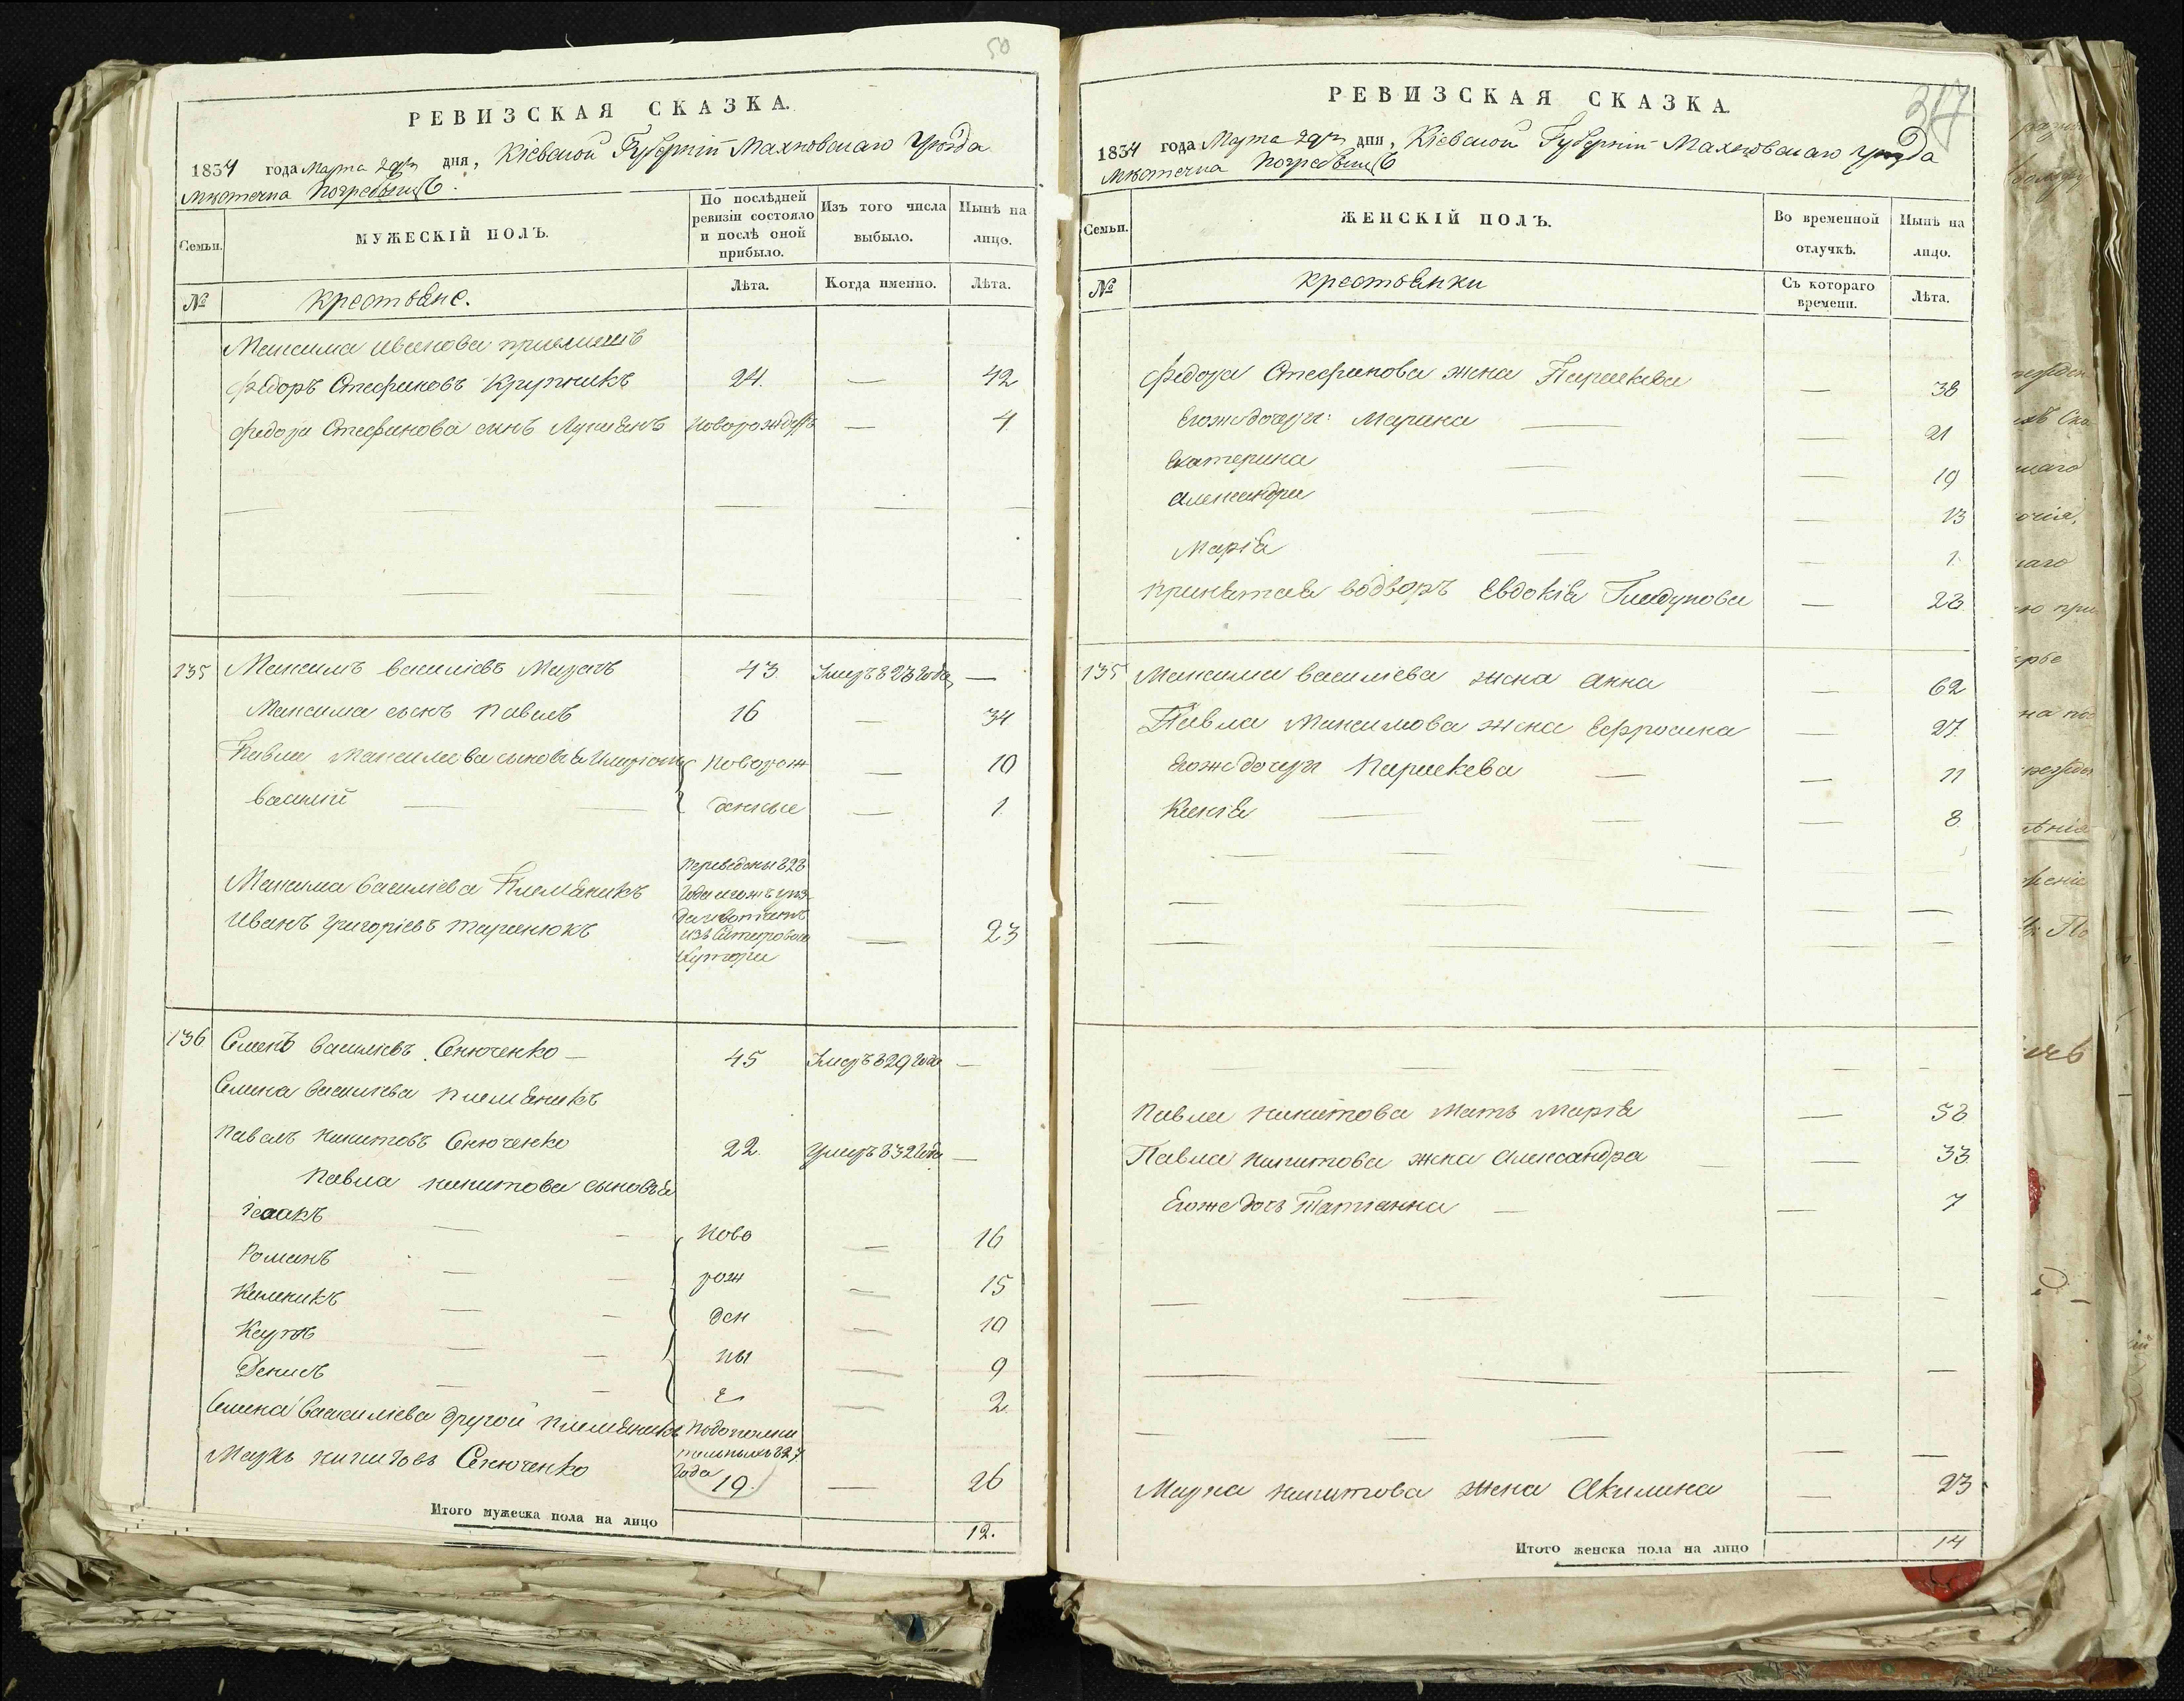 50
РЕВИЗСКАЯ СКАЗКА.
1834 года Марта 29го дня, Кіевской Губерніи Махновскаго Уѣзда
Мѣстечка Погребыщъ.
Семьи.
МУЖЕСКІЙ ПОЛЪ.
По послѣдней ревизіи состояло и послѣ оной прибыло.
Изъ того числа выбыло.
Нынѣ на лицо.
№
Крестьяне.
Лѣта.
Когда именно.
Лѣта.
Максима Иванова
Федоръ Стефановъ Крупникъ 24. — 42
Федора Стефанова сынъ Лукьянъ новорожден — 4
135 Максимъ Василіевъ Мазачъ 43. Умеръ 823 года —
Максима сынъ Павелъ 16 — 34
Павла Максимова сыновья Иларіонъ новорож — 10
Василій — — денные — 1.
Переведены 828
Максима Василіева Племяникъ года
Иванъ Григоріевъ Тарасюкъ — 23
изъ
хутора
136 Семенъ Василіевъ Сенюченко — 45 Умеръ 829 года —
Семена Василіева племяникъ
Павелъ Никитовъ Сенюченко 22. Умеръ 832 года —
Павла Никитова сыновья
Ісаакъ — — ново — 16
Романъ — — рож — 15
Калиникъ — — ден — 10
Карпъ — — ны — 9
Денисъ — — е — 2.
Семена Василіева другой племяникъ
Марко Никитовъ Сенюченко подополни
тельныхъ 827
года 19. — 26
Итого мужеска пола на лицо 12.
317
РЕВИЗСКАЯ СКАЗКА.
1834 года Марта 29го дня, Кіевской Губерніи Махновскаго Уѣзда
Мѣстечка Погребыщъ
Семьи.
ЖЕНСКІЙ ПОЛЪ.
Во временной отлучкѣ.
Нынѣ на лицо.
№
Крестьянки
Съ котораго времени.
Лѣта.
Федора Стефанова жена Параскева — 38
Егоже дочери: Марина — — 21
Екатерина — — 19
Александра — — 13
Марія — — 1.
Принятая во дворъ Евдокія Гладунова — 28
135 Максима Василіева жена Анна — 62
Павла Максимова жена Ефросина — 27.
Егоже дочери Параскева — — 11
Ксенія — — — 8.
Павла Никитова мать Марія — 58
Павла Никитова жена Александра — — 33.
Егоже дочь Татіанна — — 7
Марка Никитова жена Акилина — 23
Итого женска пола на лицо 14